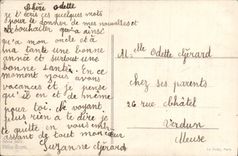 Chère Odette
je t'écris ces quelques mots
pour te donner de mes nouvelles et
te souhaiter qu'a ainsi
qu'a mon oncle et à
ma tante une bonne
année et surtout une
bonne santé. En ce
moment nous avons
vacances et je pense
qu'il en est de même
pour toi. Ne voyant
plus rien a te dire je
te quitte en vous embra
assant de tout mon cœur
Suzanne Gérard
Mlle Odette Gérard
chez ses parents
26 rue châtel
Verdun
Meuse